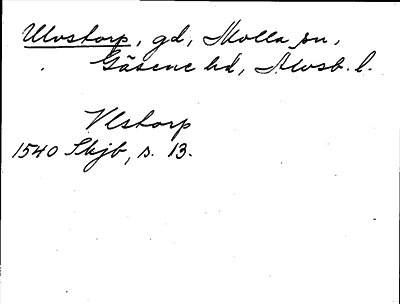 Ulvstorp, gd, Molla sn,
Gäsene hd, Älvsb. l.
Vlstorp
1540 Skjb, s. 13.